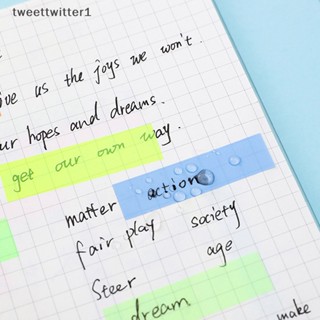 tweettwitter1
give us the joys we won't.
ur hopes and dreams.
get our own way.
matter action
fair play society
age
Steer
dream
make